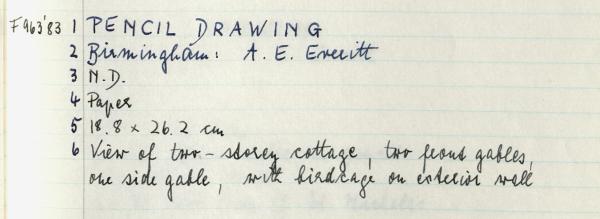 F963'83 1 PENCIL DRAWING
2 Birmingham: A. E. Everitt
3 N.D.
4 Paper
5 18.8 x 26.2 cm
6 View of two-storey cottage, two front gables,
one side gable, with birdcage on exterior wall